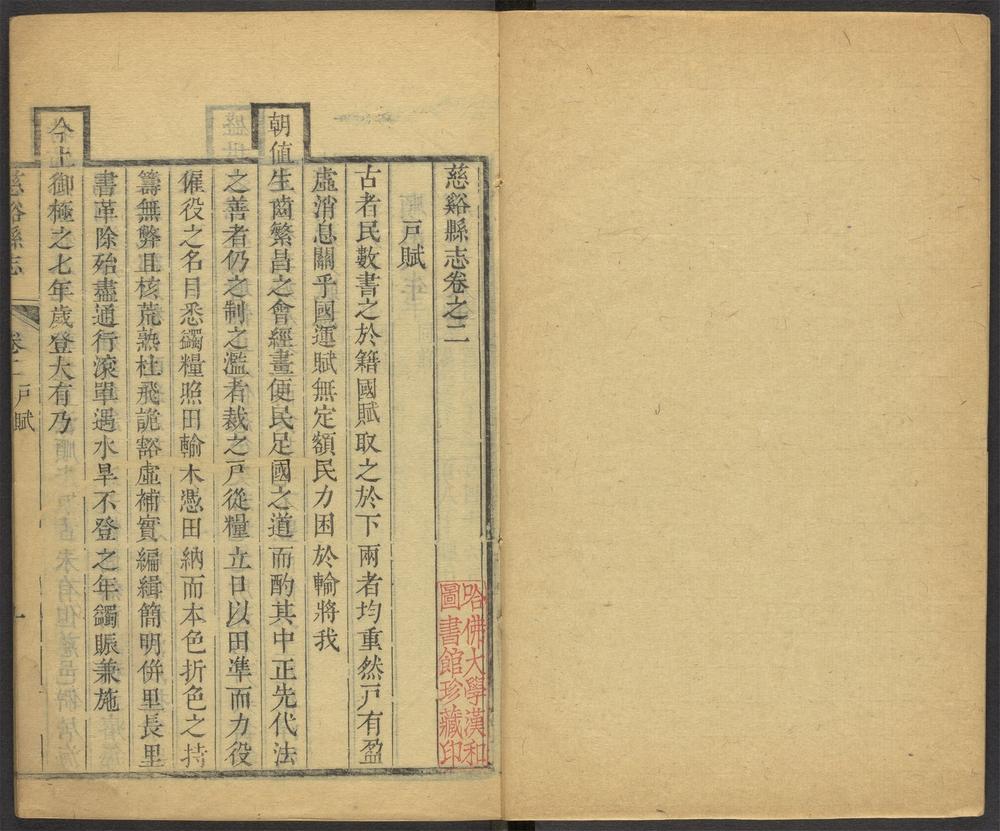 慈谿縣志卷之二
戸賦
古者民數書之於籍國賦取之於下兩者均重然戸有盈
虛消息關乎國運賦無定額民力困於輸將我
朝值生齒繁昌之會經畫便民足國之道而酌其中正先代法
之善者仍之制之濫者裁之戸從糧立日以田準而力役
傕役之名目悉蠲糧照田輸木憑田納而本色折色之持
籌無弊且核荒熟杜飛詭豁虛補實編緝簡明併里長里
書革除殆盡通行滚單遇水旱不登之年蠲賑兼施
今上御極之七年歲登大有乃
慈谿縣志
卷二 戸賦
一
哈佛大學漢和
圖書館珍藏印